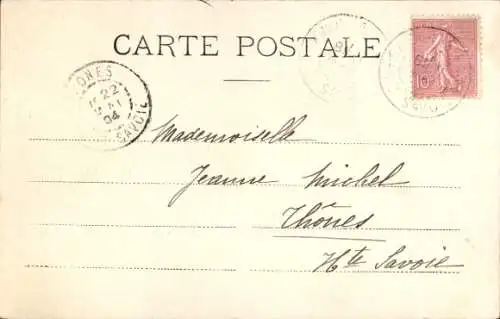 CARTE POSTALE
ONES
22
04
SAVOIE
10
Mademoiselle
Jeanne Michel
Thônes
Hte Savoie